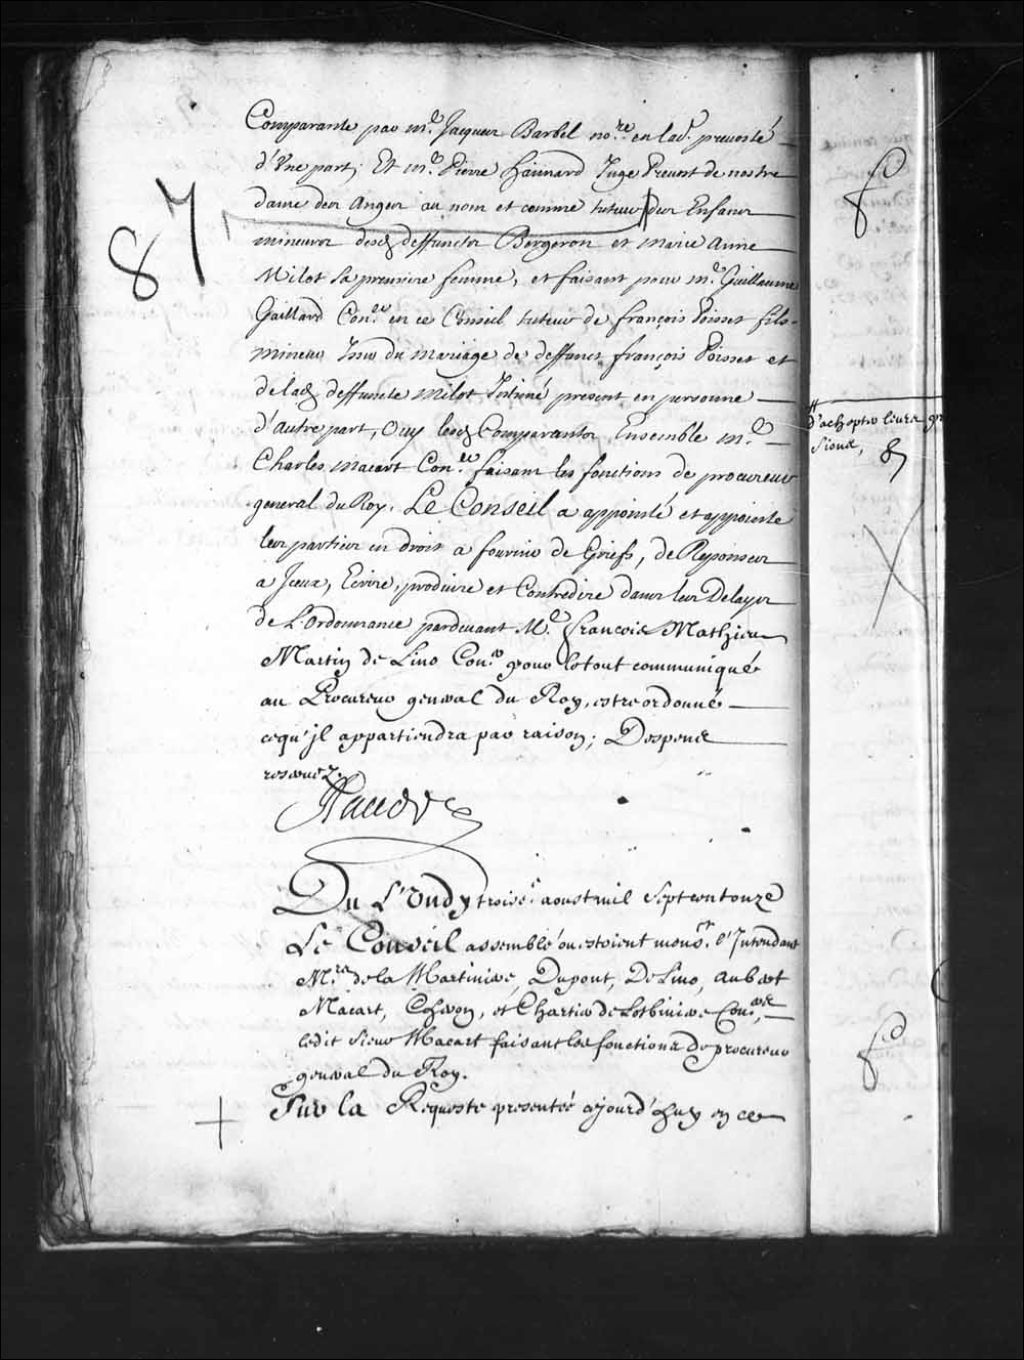 Comparante par me. Jacques Barbel nore. en lad. prevosté
d'Une part, Et me. Pierre haimard Juge Prevost de nostre
dame des Anges au nom et comme tuteur des Enfans
mineurs desd deffuncts Bergeron et marie Anne
Milot sa premiere femme, et faisant pour me. Guillaume
Gaillard Coner. en ce Conseil tuteur de françois Poisset fils
mineur Issu du mariage de deffunct françois Poisset et
de lad deffuncte Milot Intimé present en personne
d'autre part, Ouy lesd Comparants Ensemble me.
Charles macart Coner. faisant les fonctions de procureur
general du Roy. Le Conseil a appointé et appointe
les parties en droit a fournir de Griefs, de Reponses
a Iceux, Ecrire, produire et Contredire dans les Delays
de L'Ordonnance pardevant Me. francois Mathieu
Martin de Lino Coner. pour le tout communiqué
au Procureur general du Roy, estre ordonné
cequ'jl appartiendra par raison; Despens
reservez.
Du L'Undy troise. aoust mil sept cent onze
Le Conseil assemblé ou estoient monsr. l'Intendant
Mrs. de la Martiniere, Dupont, De Lino, Aubert
Macart, Cheron, et Chartier de Lotbiniere Coners,
ledit sieur Macart faisant les fonctions de procureur
general du Roy.
Sur la Requeste presentée ajourd'huy en ce
87